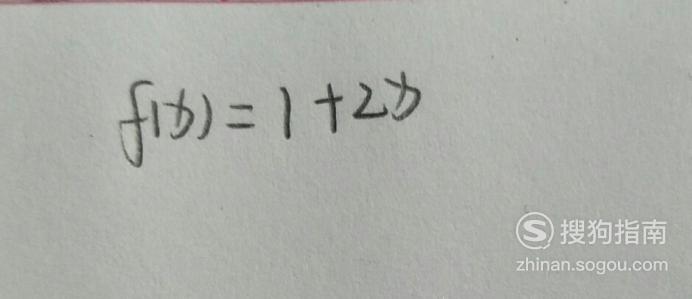 f(x) = 1 + 2x
搜狗指南
zhinan.sogou.com